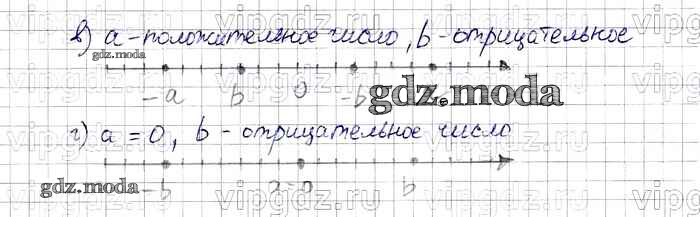 в) a - положительное число, b - отрицательное
gdz.moda
-a b 0 -b
gdz.moda
г) a = 0, b - отрицательное число
gdz.moda
-b a=0 b